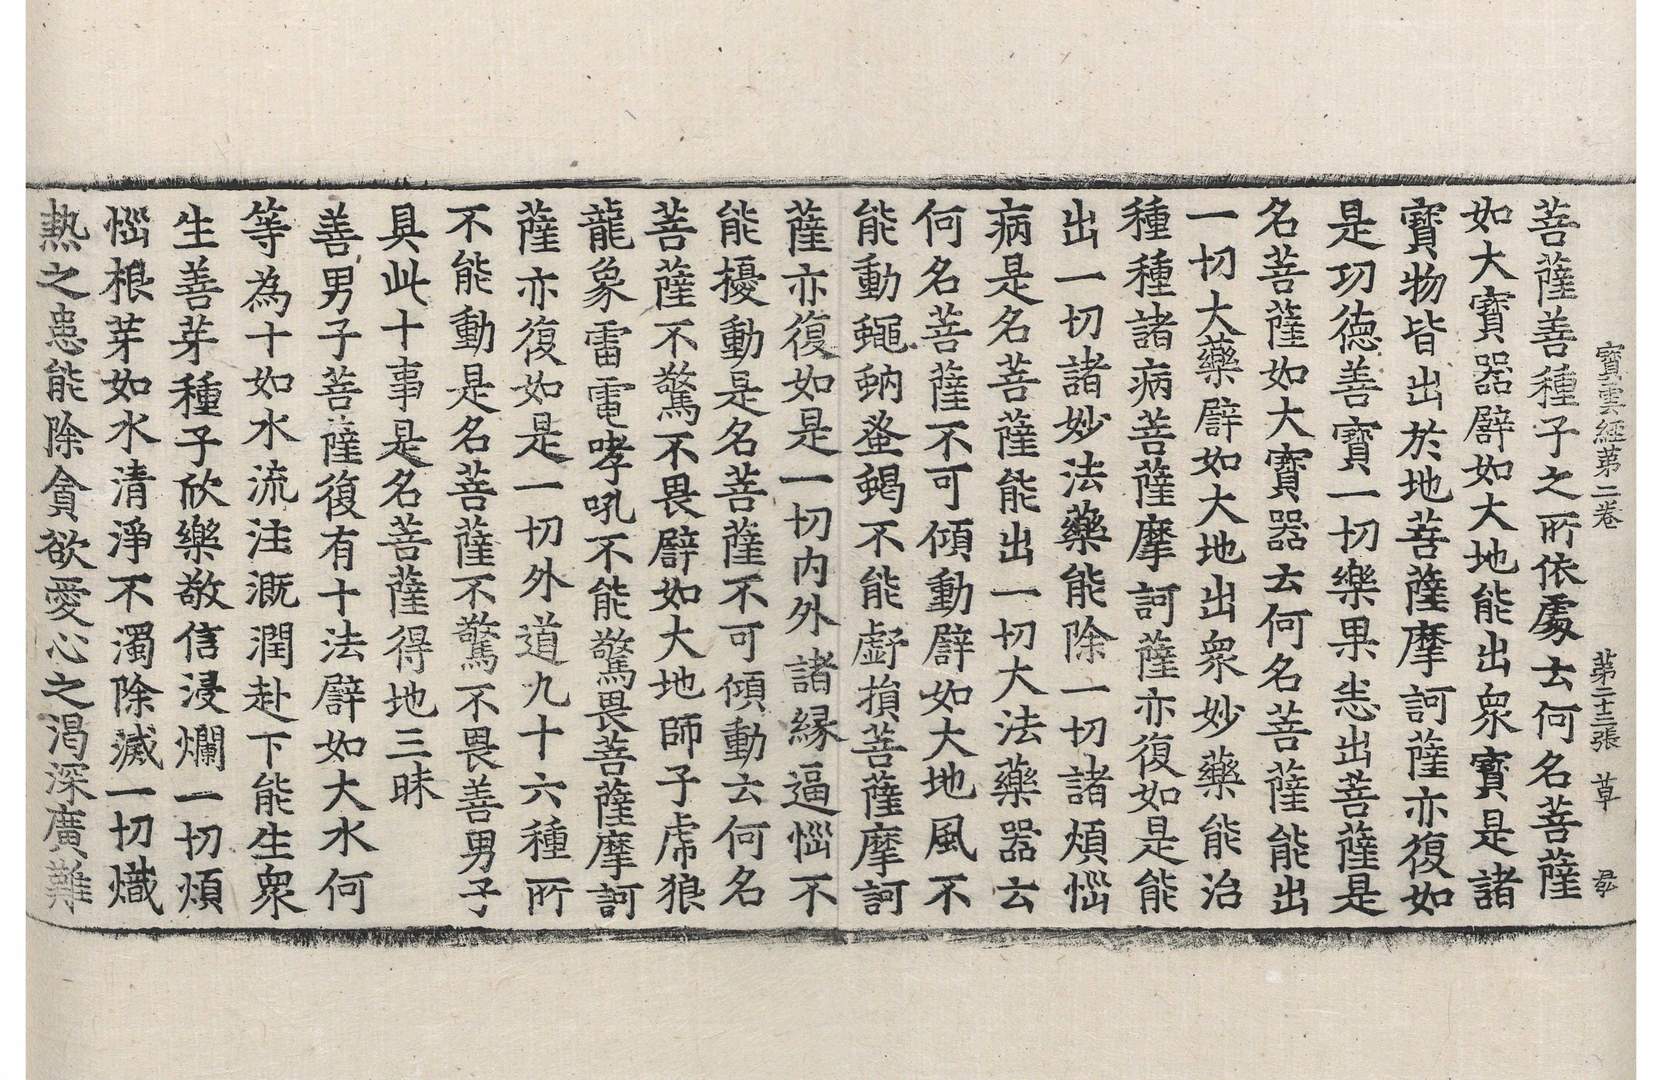 寶雲經第二卷　第二十二張　草
菩薩善種子之所依處云何名菩薩
如大寶器譬如大地能出衆寶是諸
寶物皆出於地菩薩摩訶薩亦復如
是功德善寶一切樂果悉出菩薩是
名菩薩如大寶器云何名菩薩能出
一切大藥譬如大地出衆妙藥能治
種種諸病菩薩摩訶薩亦復如是能
出一切諸妙法藥能除一切諸煩惱
病是名菩薩能出一切大法藥器云
何名菩薩不可傾動譬如大地風不
能動蠅蚋蚤蝎不能虧損菩薩摩訶
薩亦復如是一切内外諸緣逼惱不
能擾動是名菩薩不可傾動云何名
菩薩不驚不畏譬如大地師子虎狼
龍象雷電哮吼不能驚畏菩薩摩訶
薩亦復如是一切外道九十六種所
不能動是名菩薩不驚不畏善男子
具此十事是名菩薩得地三昧
善男子菩薩復有十法譬如大水何
等為十如水流注溉潤赴下能生衆
生善芽種子欣樂敬信浸爛一切煩
惱根芽如水清淨不濁除滅一切熾
熱之患能除貪欲愛心之渴深廣難